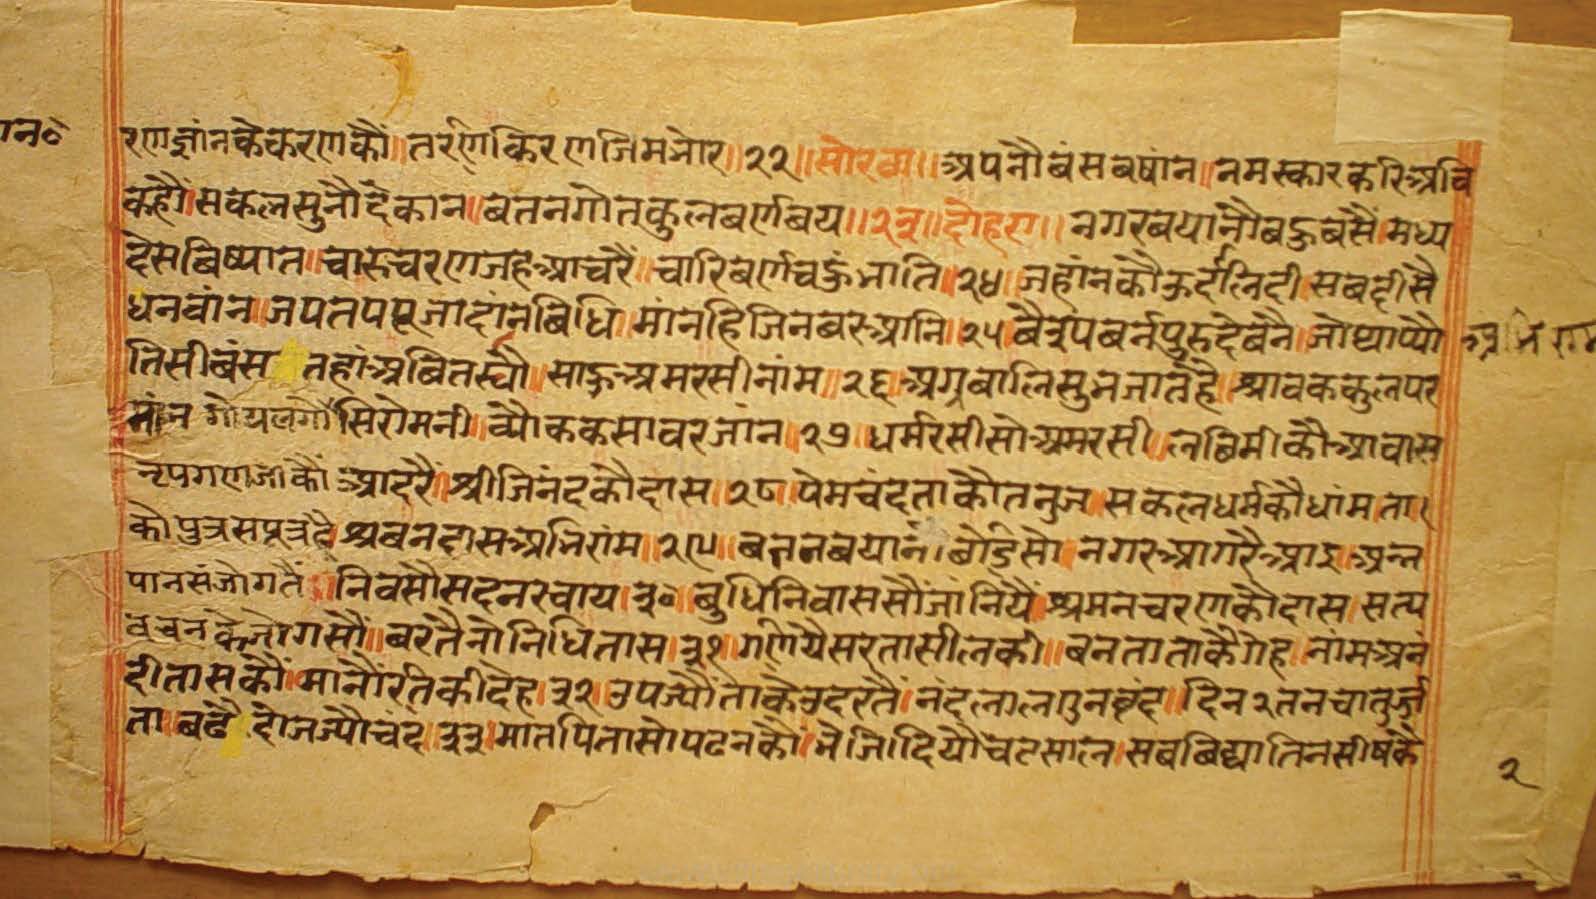 रणज्ञांनकेकरणकौं॥तरणिकिरणजिमभोर॥२२॥सोरठा॥अपनौबंसबषांन॥नमस्कारकरिअबि
कहौं॥सकलसुनौंदेकान॥बतनगोतकुलबर्णबय॥२३॥दोहरा॥नगरबयानौंबहुबसैं॥मध्य
देसबिष्यात॥चारुचरणजहआचरैं॥चारिबर्णबहुंभाति॥२४॥जहांनकौऊदलिदी॥सबदीसै
धनवांन॥जपतपपूजादांनबिधि॥मांनहिजिनबरआंनि॥२५॥बैश्यबर्नपुरुदेवनै॥जोथाप्यौ
तिसीबंस तहांअबितस्यौं॥साहुअमरसीनांम॥२६॥अग्रबालिसुभजातहै॥श्रावककुलपर
मांन गोयलगौसिरोमनी॥व्यौककसावरजांन॥२७॥धर्मरसीसोअमरसी॥लछिमीकौआवास
नृपगणजाकौं आदरैं॥श्रीजिनंदकौदास॥२८॥पेमचंदताकौतनुज॥सकलधर्मकौधांम॥ता
कौपुत्रसपूत्रहै॥श्रबनदासअभिरांम॥२९॥बतनबयानं।छोडिसो॥नगरआगरैआइ॥अन्न
पानसंजोगतैं॥निवसौसदनरचाय॥३०॥बुधिनिवाससौंजांनियैं॥श्रमनचरणकौदास॥सत्य
बचनकेजोगसौं॥बरतैनोनिधितास॥३१॥गणियैसरतासीलकी॥बनताताकैगेह॥नांमअनं
दीतासकौं॥मानौंरतिकीदेह॥३२॥उपज्यौंताकेउदरतैं॥नंदलालगुनबृंद॥दिन२तनचातुर्ज
ता॥बढै दोजज्यौंचंद॥३३॥मातपितासोपढनकौं॥भेजिदियौचटसाल॥सबबिद्यातिनसीषकै
२